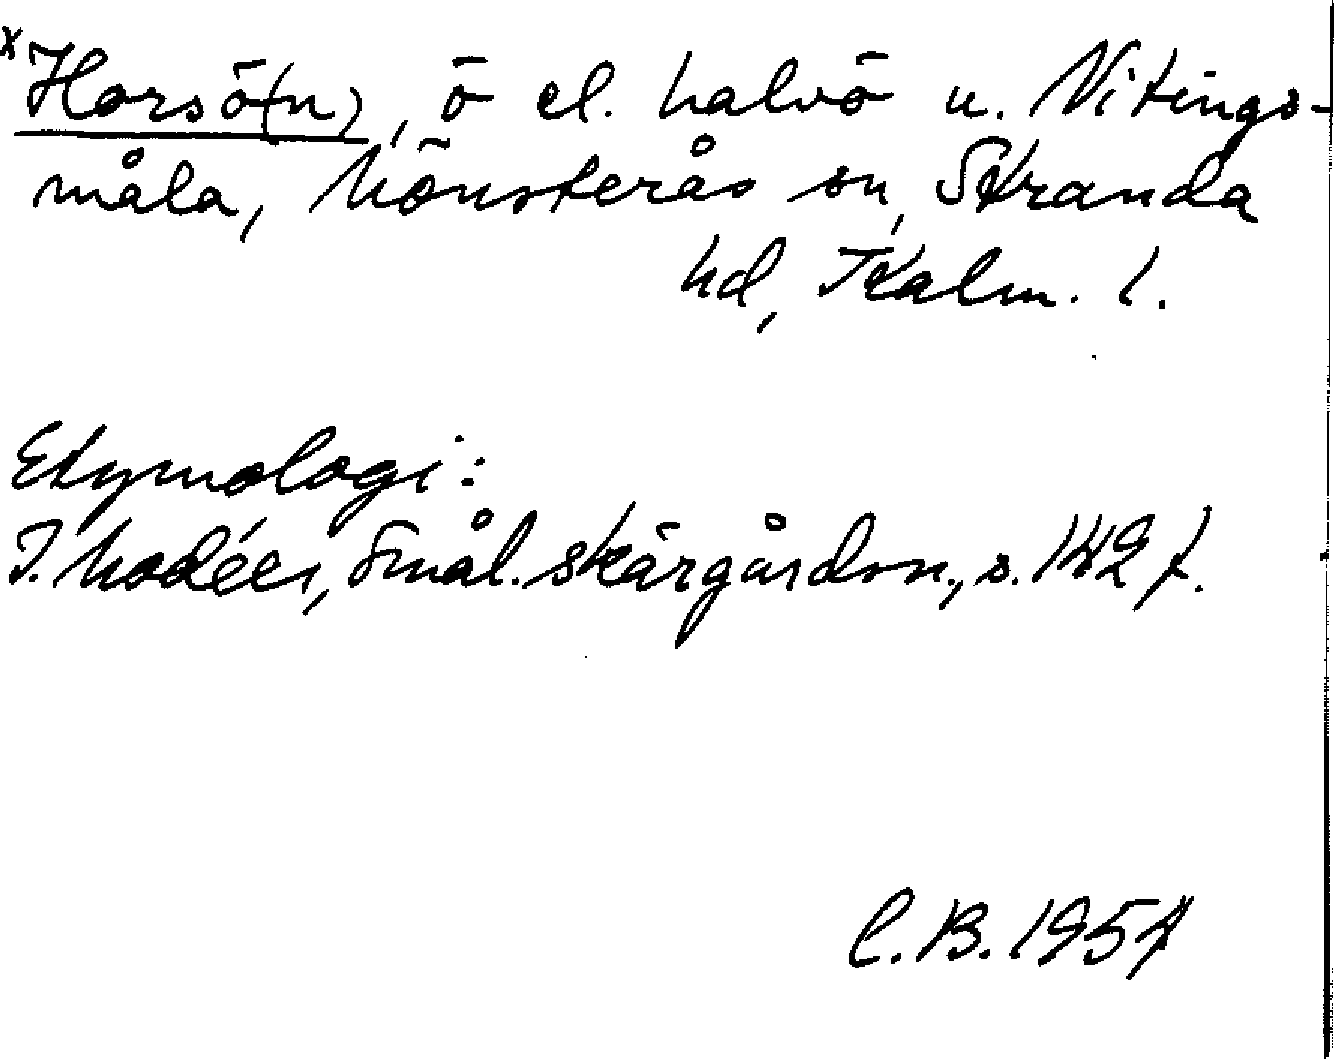 x Horsö(n), ö el. halvö u. Vitings-
måla, Mönsterås sn, Stranda
hd, Kalm. l.
Etymologi:
I. Modéer, Smål. skärgårdsn., s. 142 f.
C. B. 1957